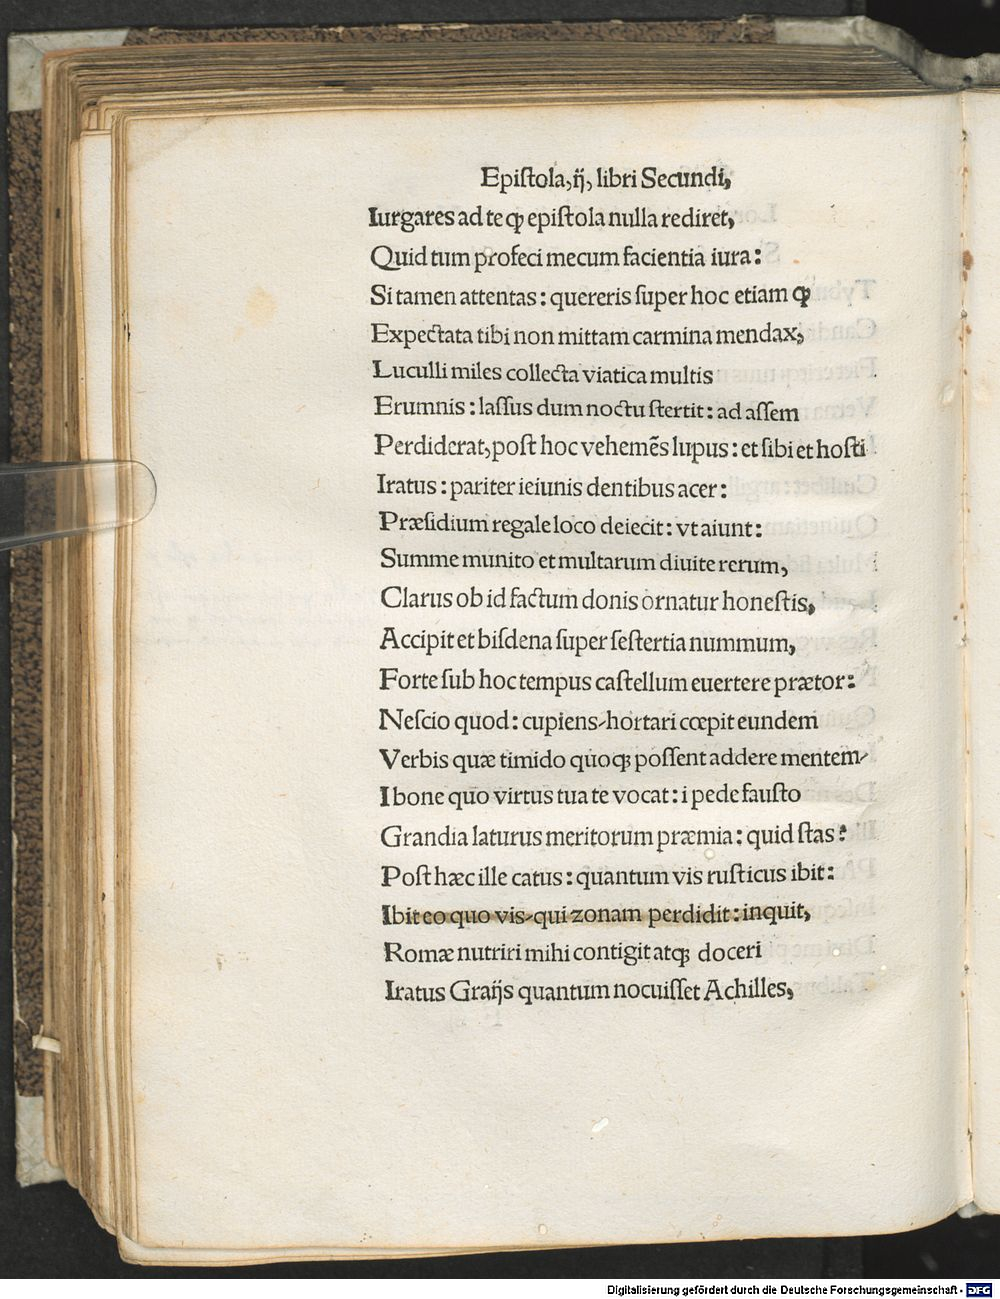 Epiſtola,ij, libri Secundi,
Iurgares ad te ꝙ epiſtola nulla rediret,
Quid tum profeci mecum facientia iura:
Si tamen attentas: quereris ſuper hoc etiam ꝙ
Expectata tibi non mittam carmina mendax,
Luculli miles collecta viatica multis
Erumnis: laſſus dum noctu ſtertit: ad aſſem
Perdiderat, poſt hoc vehemẽs lupus: et ſibi et hoſti
Iratus: pariter ieiunis dentibus acer:
Præſidium regale loco deiecit: vt aiunt:
Summe munito et multarum diuite rerum,
Clarus ob id factum donis ornatur honeſtis,
Accipit et biſdena ſuper ſeſtertia nummum,
Forte ſub hoc tempus caſtellum euertere prætor:
Neſcio quod: cupiens-hortari cœpit eundem
Verbis quæ timido quoqꝫ poſſent addere mentem-
I bone quo virtus tua te vocat: i pede fauſto
Grandia laturus meritorum præmia: quid ſtas?
Poſt hæc ille catus: quantum vis ruſticus ibit:
Ibit eo quo vis-qui zonam perdidit: inquit,
Romæ nutriri mihi contigit atqꝫ doceri
Iratus Graijs quantum nocuiſſet Achilles,
Digitalisierung gefördert durch die Deutsche Forschungsgemeinschaft - DFG